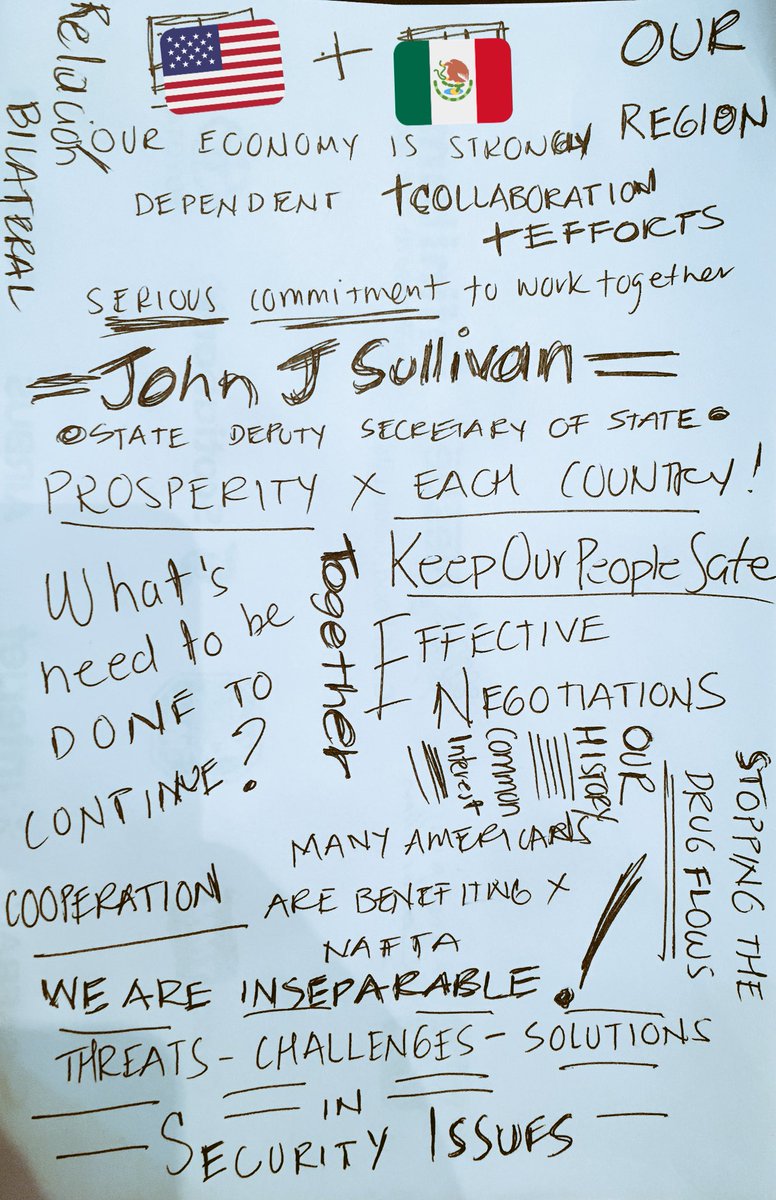 Relación
BILATERAL
+
OUR
REGION
OUR ECONOMY IS STRONGLY
DEPENDENT +COLLABORATION
+EFFORTS
SERIOUS commitment to work together
=John J Sullivan=
STATE DEPUTY SECRETARY OF STATE
PROSPERITY x EACH COUNTRY!
What's
need to be
DONE TO
CONTINUE?
Together
Keep Our People Safe
EFFECTIVE
NEGOTIATIONS
OUR
HISTORY
Commun
Interest
STOPPING THE
DRUG FLOWS
MANY AMERICANS
ARE BENEFITING x
NAFTA
COOPERATION
WE ARE INSEPARABLE!
THREATS - CHALLENGES - SOLUTIONS
IN
SECURITY ISSUES